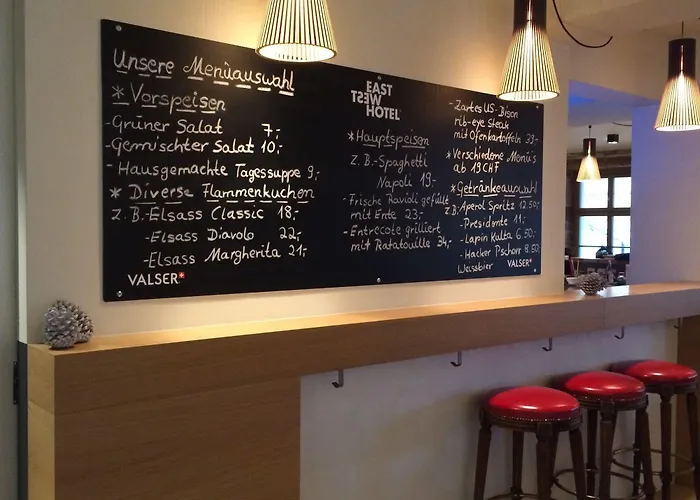 Unsere Menüauswahl
* Vorspeisen
- Grüner Salat 7,-
- Gemischter Salat 10,-
- Hausgemachte Tagessuppe 9,-
* Diverse Flammenkuchen
z.B.-Elsass Classic 18,-
- Elsass Diavolo 22,-
- Elsass Margherita 21,-
VALSER
EAST
WEST
HOTEL
* Hauptspeisen
z.B.-Spaghetti
Napoli 19,-
- Frische Ravioli gefüllt
mit Ente 23,-
- Entrecote grilliert
mit Ratatouille 34,-
- Zartes US-Bison
rib-eye Steak
mit Ofenkartoffeln 39,-
* Verschiedene Menüs
ab 19 CHF
* Getränkeauswahl
z.B. Aperol Spritz 12.50,-
- Presidente 11,-
- Lapin Kulta 6.50,-
- Hacker Pschorr 8.50,-
Weissbier
VALSER